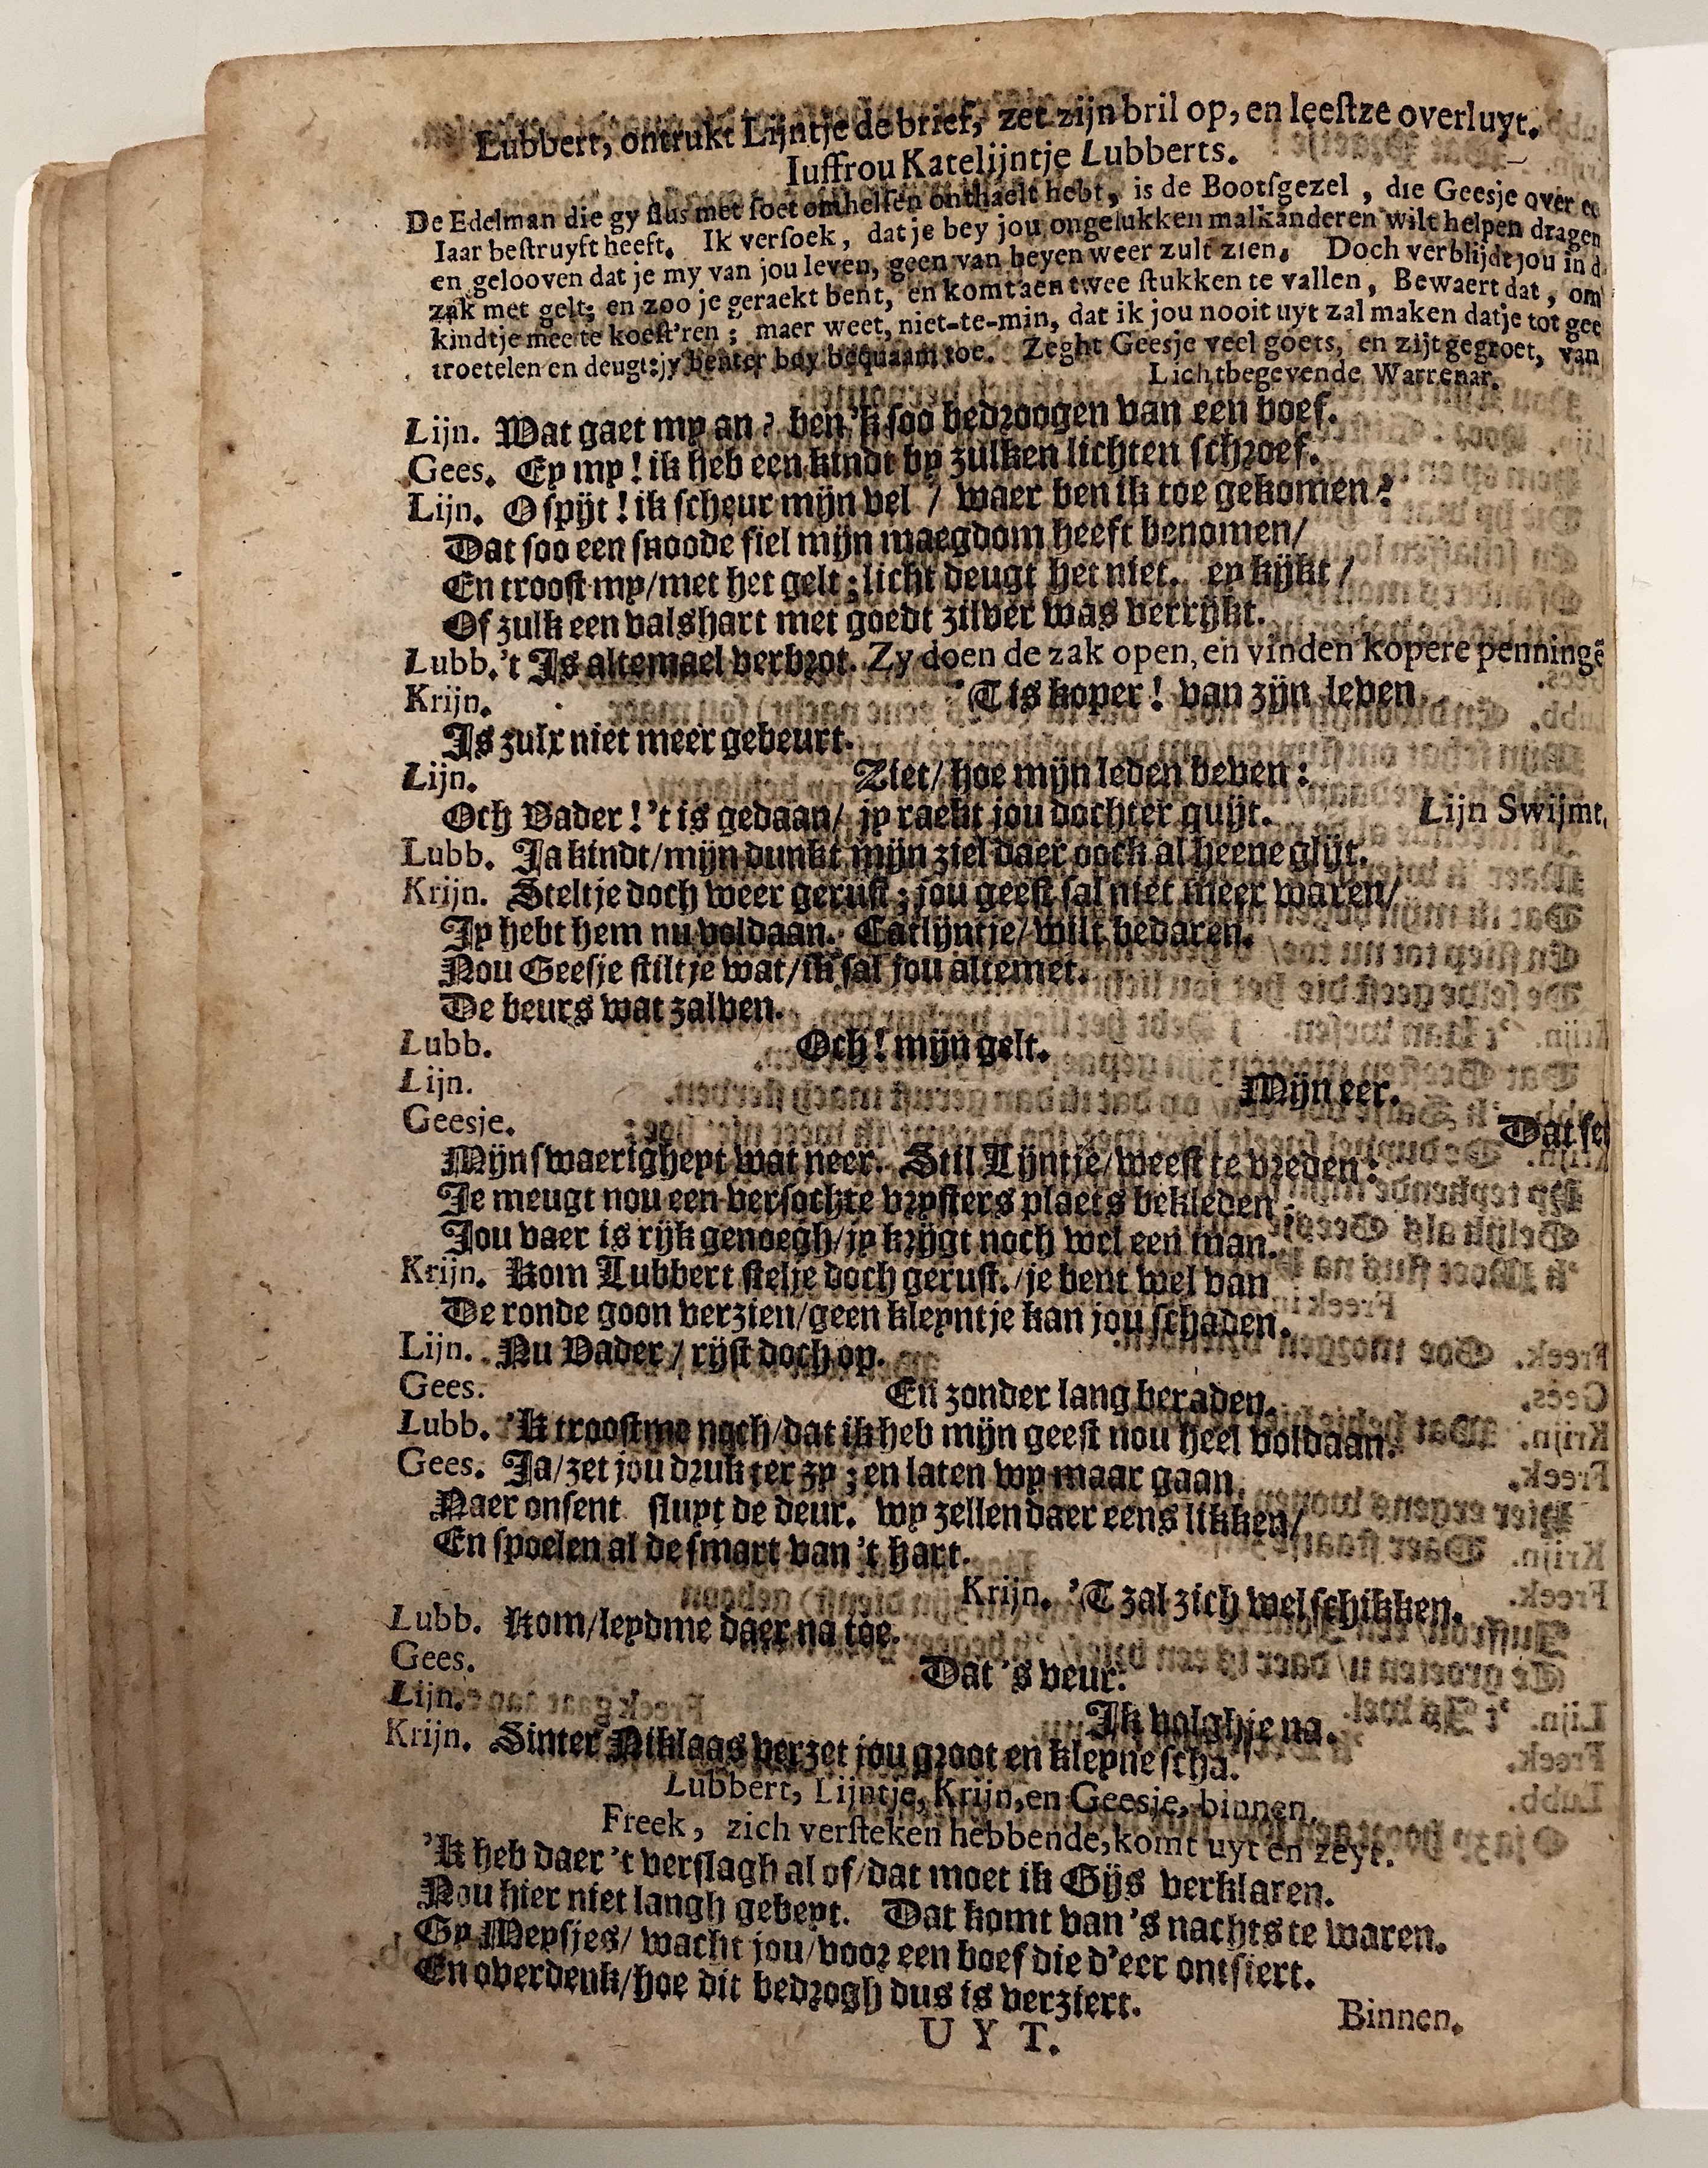 Lubbert, ontrukt Lijntje de brief, zet zijn bril op, en leeſtze overluyt.
Iuffrou Katelijntje Lubberts.
De Edelman die gy flus met ſoet omhelſen onthaelt hebt, is de Bootſgezel, die Geesje over
Iaar beſtruyft heeft. Ik verſoek, dat je bey jou ongelukken malkanderen wilt helpen dragen
en gelooven dat je my van jou leven, geen van beyen weer zult zien. Doch verblijdt jou in d
zak met gelt; en zoo je geraekt bent, en komt aen twee ſtukken te vallen, Bewaert dat, om
kindtje mee te koeſt'ren; maer weet, niet-te-min, dat ik jou nooit uyt zal maken datje tot gee
troetelen en deugt: jy benter bey bequaam toe. Zeght Geesje veel goets, en zijt gegroet, van
Lichtbegevende Warrenar.
Lijn. Wat gaet my an? ben 'k ſoo bedroogen van een boef.
Gees. Ey my! ik heb een kindt by zulken lichten ſchroef.
Lijn. O ſpijt! ik ſcheur mijn vel / waer ben ik toe gekomen?
Dat ſoo een ſnoode fiel mijn maegdom heeft benomen/
En trooſt my/met het gelt; licht deugt het niet. ey kijkt/
Of zulk een valshart met goedt zilver was verrijkt.
Lubb. 't Is altemael verbrot. Zy doen de zak open, en vinden kopere penningē
Krijn. 'T is koper! van zijn leven
Is zulx niet meer gebeurt.
Lijn. Ziet/ hoe mijn leden beven:
Och Vader! 't is gedaan/ jy raekt jou dochter quijt. Lijn Swijmt.
Lubb. Ja kindt/mijn dunkt mijn ziel daer oock al heene glijt.
Krijn. Steltje doch weer geruſt; jou geeſt ſal niet meer waren/
Jy hebt hem nu voldaan. Catlijntje/ wilt bedaren.
Nou Geesje ſtiltje wat/ik ſal jou altemet.
De beurs wat zalven.
Lubb. Och! mijn gelt.
Lijn. Mijn eer.
Geesje. Dat ſet
Mijn ſwaerigheyt wat neer. Stil Lijntje/weeſt te vreden:
Je meugt nou een verſochte vryſters plaets bekleden
Jou vaer is rijk genoegh/jy krijgt noch wel een man.
Krijn. Kom Lubbert ſtelje doch geruſt./je bent wel van
De ronde goon verzien/geen kleyntje kan jou ſchaden.
Lijn. Nu Vader/ rijſt doch op.
Gees. En zonder lang beraden.
Lubb. 'K trooſtme noch/dat ik heb mijn geeſt nou heel voldaan.
Gees. Ja/zet jou druk ter zy; en laten wy maar gaan
Naer onſent ſluyt de deur. wy zellen daer eens likken/
En ſpoelen al de ſmart van 't hart.
Krijn. 'T zal zich wel ſchikken.
Lubb. Kom/leydme daer na toe.
Gees. Dat 's veur.
Lijn. Ik volgh je na.
Krijn. Sinter Niklaas verzet jou groot en kleyne ſcha.
Lubbert, Lijntje, Krijn, en Geesje, binnen.
Freek, zich verſteken hebbende, komt uyt en zeyt.
'K heb daer 't verſlagh al of/dat moet ik Gijs verklaren.
Nou hier niet langh gebeyt. Dat komt van 's nachts te waren.
Gy Meysjes/ wacht jou/voor een boef die d'eer ontſiert.
En overdenk/hoe dit bedrogh dus is verziert.
Binnen.
U Y T.